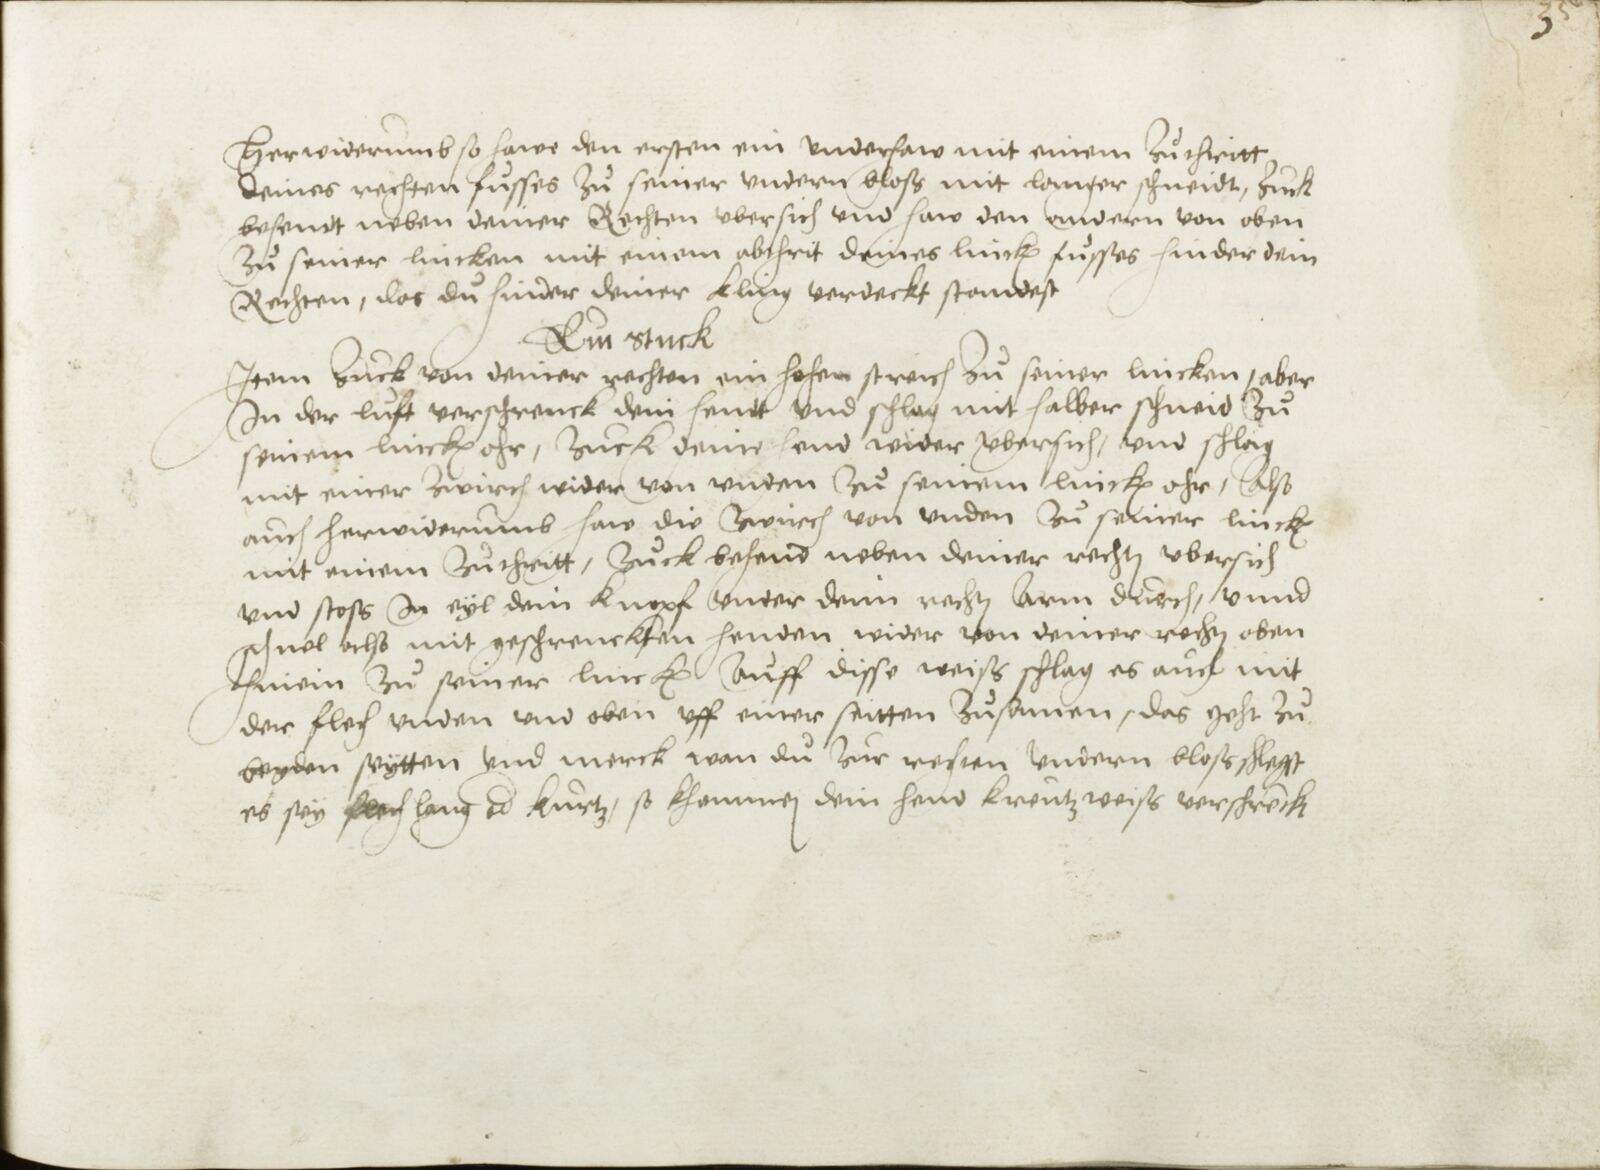 35
Herwiderumb so hawe den ersten ein underhaw mit einem Zuthritt
deines rechten fusses Zu seiner undern bloß mit langer schneidt, Zuck
behendt neben deiner Rechten ubersich und haw den andern von oben
Zu seiner lincken mit einem abthrit deines linck fusses hinder dein
Rechten, das du hinder deiner kling verdeckt standest
Ein stuck
Item Zuck von deiner rechten ein hohen streich Zu seiner lincken, aber
In der luft verschrenck dein hendt und schlag mit halber schneid Zu
seinem linck ohr, Zuck deine hend wider ubersich, und schlag
mit einer Zwirch wider von unden Zu seinem linck ohr, Also
auch herwiderumb haw die Zwirch von unden Zu seiner linck
mit einem Zuthritt, Zuck behend neben deiner recht ubersich
und stoss In eyl dein knopf under deim recht Arm durch, unnd
schnel also mit geschrenckten henden wider von deiner recht oben
hinein Zu seiner linck Auff disse weiß schlag es auch mit
der flech unden und oben uff einer seitten Zusamen, das geht Zu
beyden seytten und merck wan du Zur rechten undern bloß schlegst
es sey flech lang od kurtz, so khommen dein hend kreutzweiß verschrenck